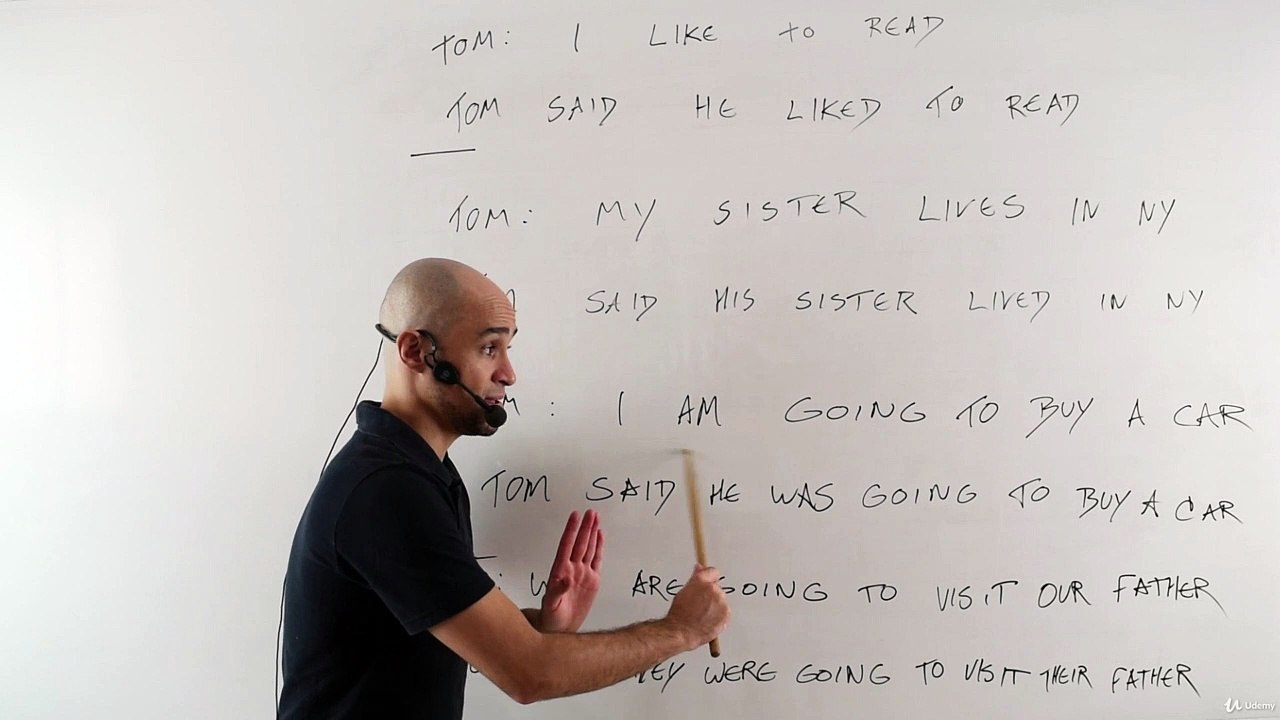 TOM: I LIKE TO READ
TOM SAID HE LIKED TO READ
TOM: MY SISTER LIVES IN NY
SAID HIS SISTER LIVED IN NY
: I AM GOING TO BUY A CAR
TOM SAID HE WAS GOING TO BUY A CAR
: ARE GOING TO VISIT OUR FATHER
WERE GOING TO VISIT THEIR FATHER
Udemy